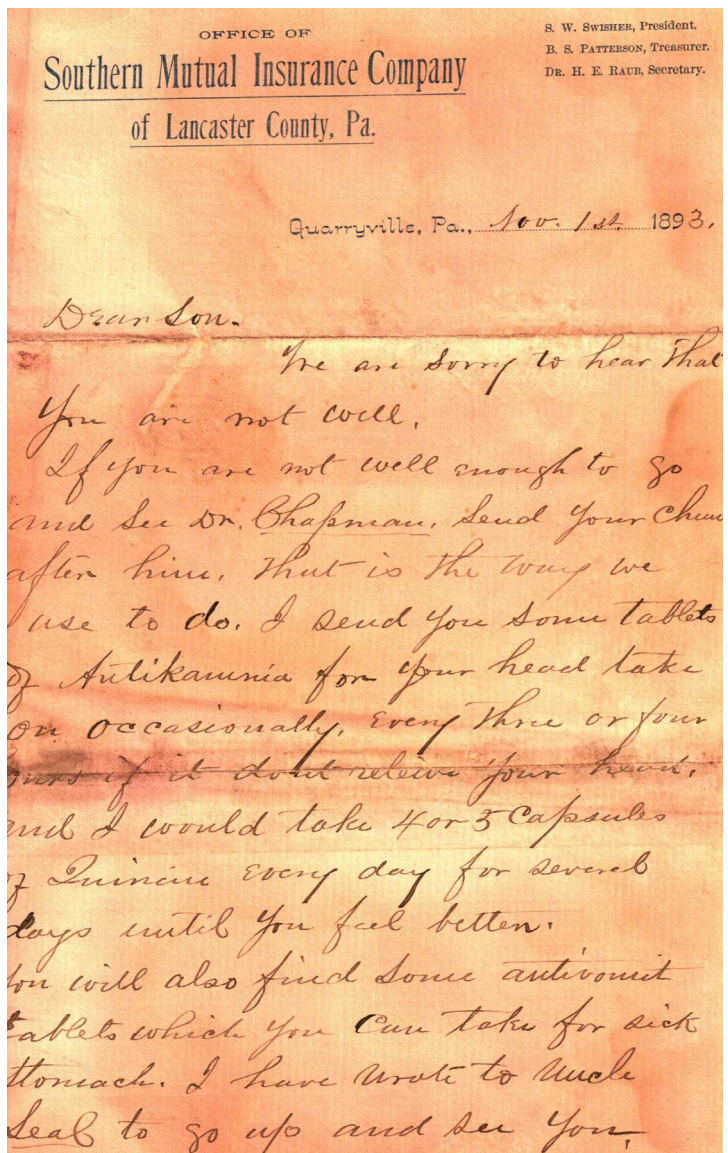 OFFICE OF
Southern Mutual Insurance Company
of Lancaster County, Pa.
S. W. SWISHER, President.
B. S. PATTERSON, Treasurer.
DR. H. E. RAUB, Secretary.
Quarryville, Pa., Nov. 1st. 1893.
Dear Son.
We are sorry to hear that
you are not well.
If you are not well enough to go
and see Dr. Chapman. Send your chum
after him. that is the way we
use to do. I send you some tablets
of Antikamnia for your head take
on occasionally. Every three or four
ours if it dont releive your head.
and I would take 4 or 5 capsules
of Quinine every day for several
days until you feel better.
You will also find some antivomit
tablets which you can take for sick
stomach. I have wrote to Uncle
Seal to go up and see you.